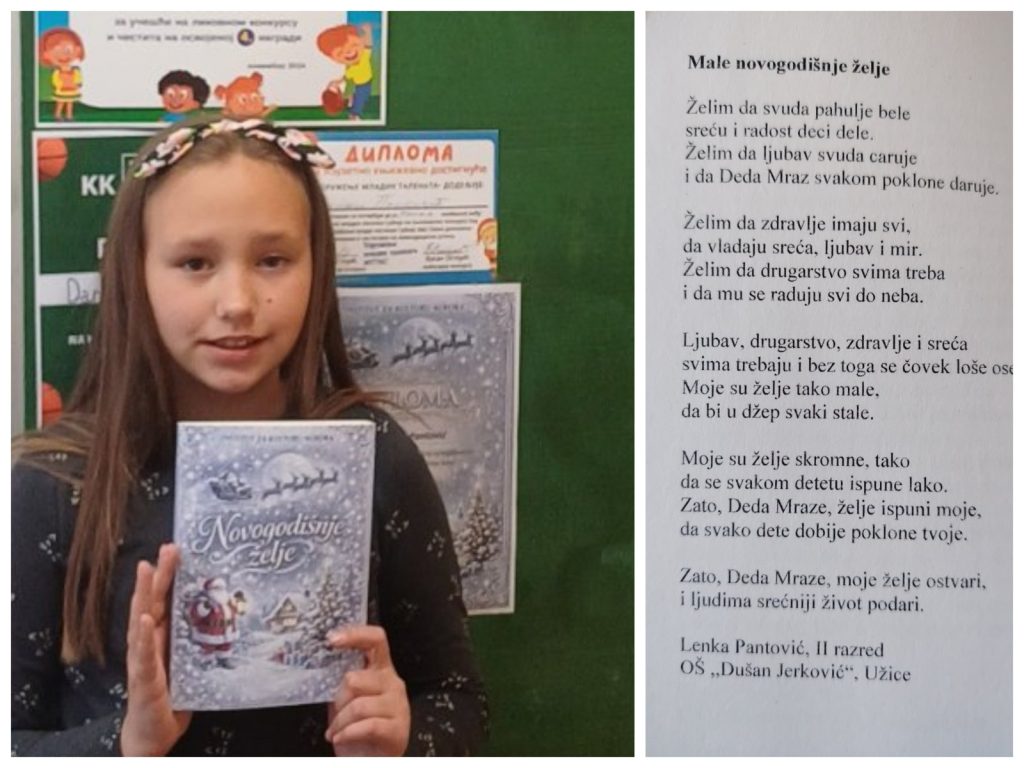 за учешће на ликовном конкурсу
и честита на освојеној 4. награди
новембар 2024
КК
ДИПЛОМА
Dar
НА
Pantović
Novogodišnje
želje
Male novogodišnje želje
Želim da svuda pahulje bele
sreću i radost deci dele.
Želim da ljubav svuda caruje
i da Deda Mraz svakom poklone daruje.
Želim da zdravlje imaju svi,
da vladaju sreća, ljubav i mir.
Želim da drugarstvo svima treba
i da mu se raduju svi do neba.
Ljubav, drugarstvo, zdravlje i sreća
svima trebaju i bez toga se čovek loše ose
Moje su želje tako male,
da bi u džep svaki stale.
Moje su želje skromne, tako
da se svakom detetu ispune lako.
Zato, Deda Mraze, želje ispuni moje,
da svako dete dobije poklone tvoje.
Zato, Deda Mraze, moje želje ostvari,
i ljudima srećniji život podari.
Lenka Pantović, II razred
OŠ „Dušan Jerković“, Užice